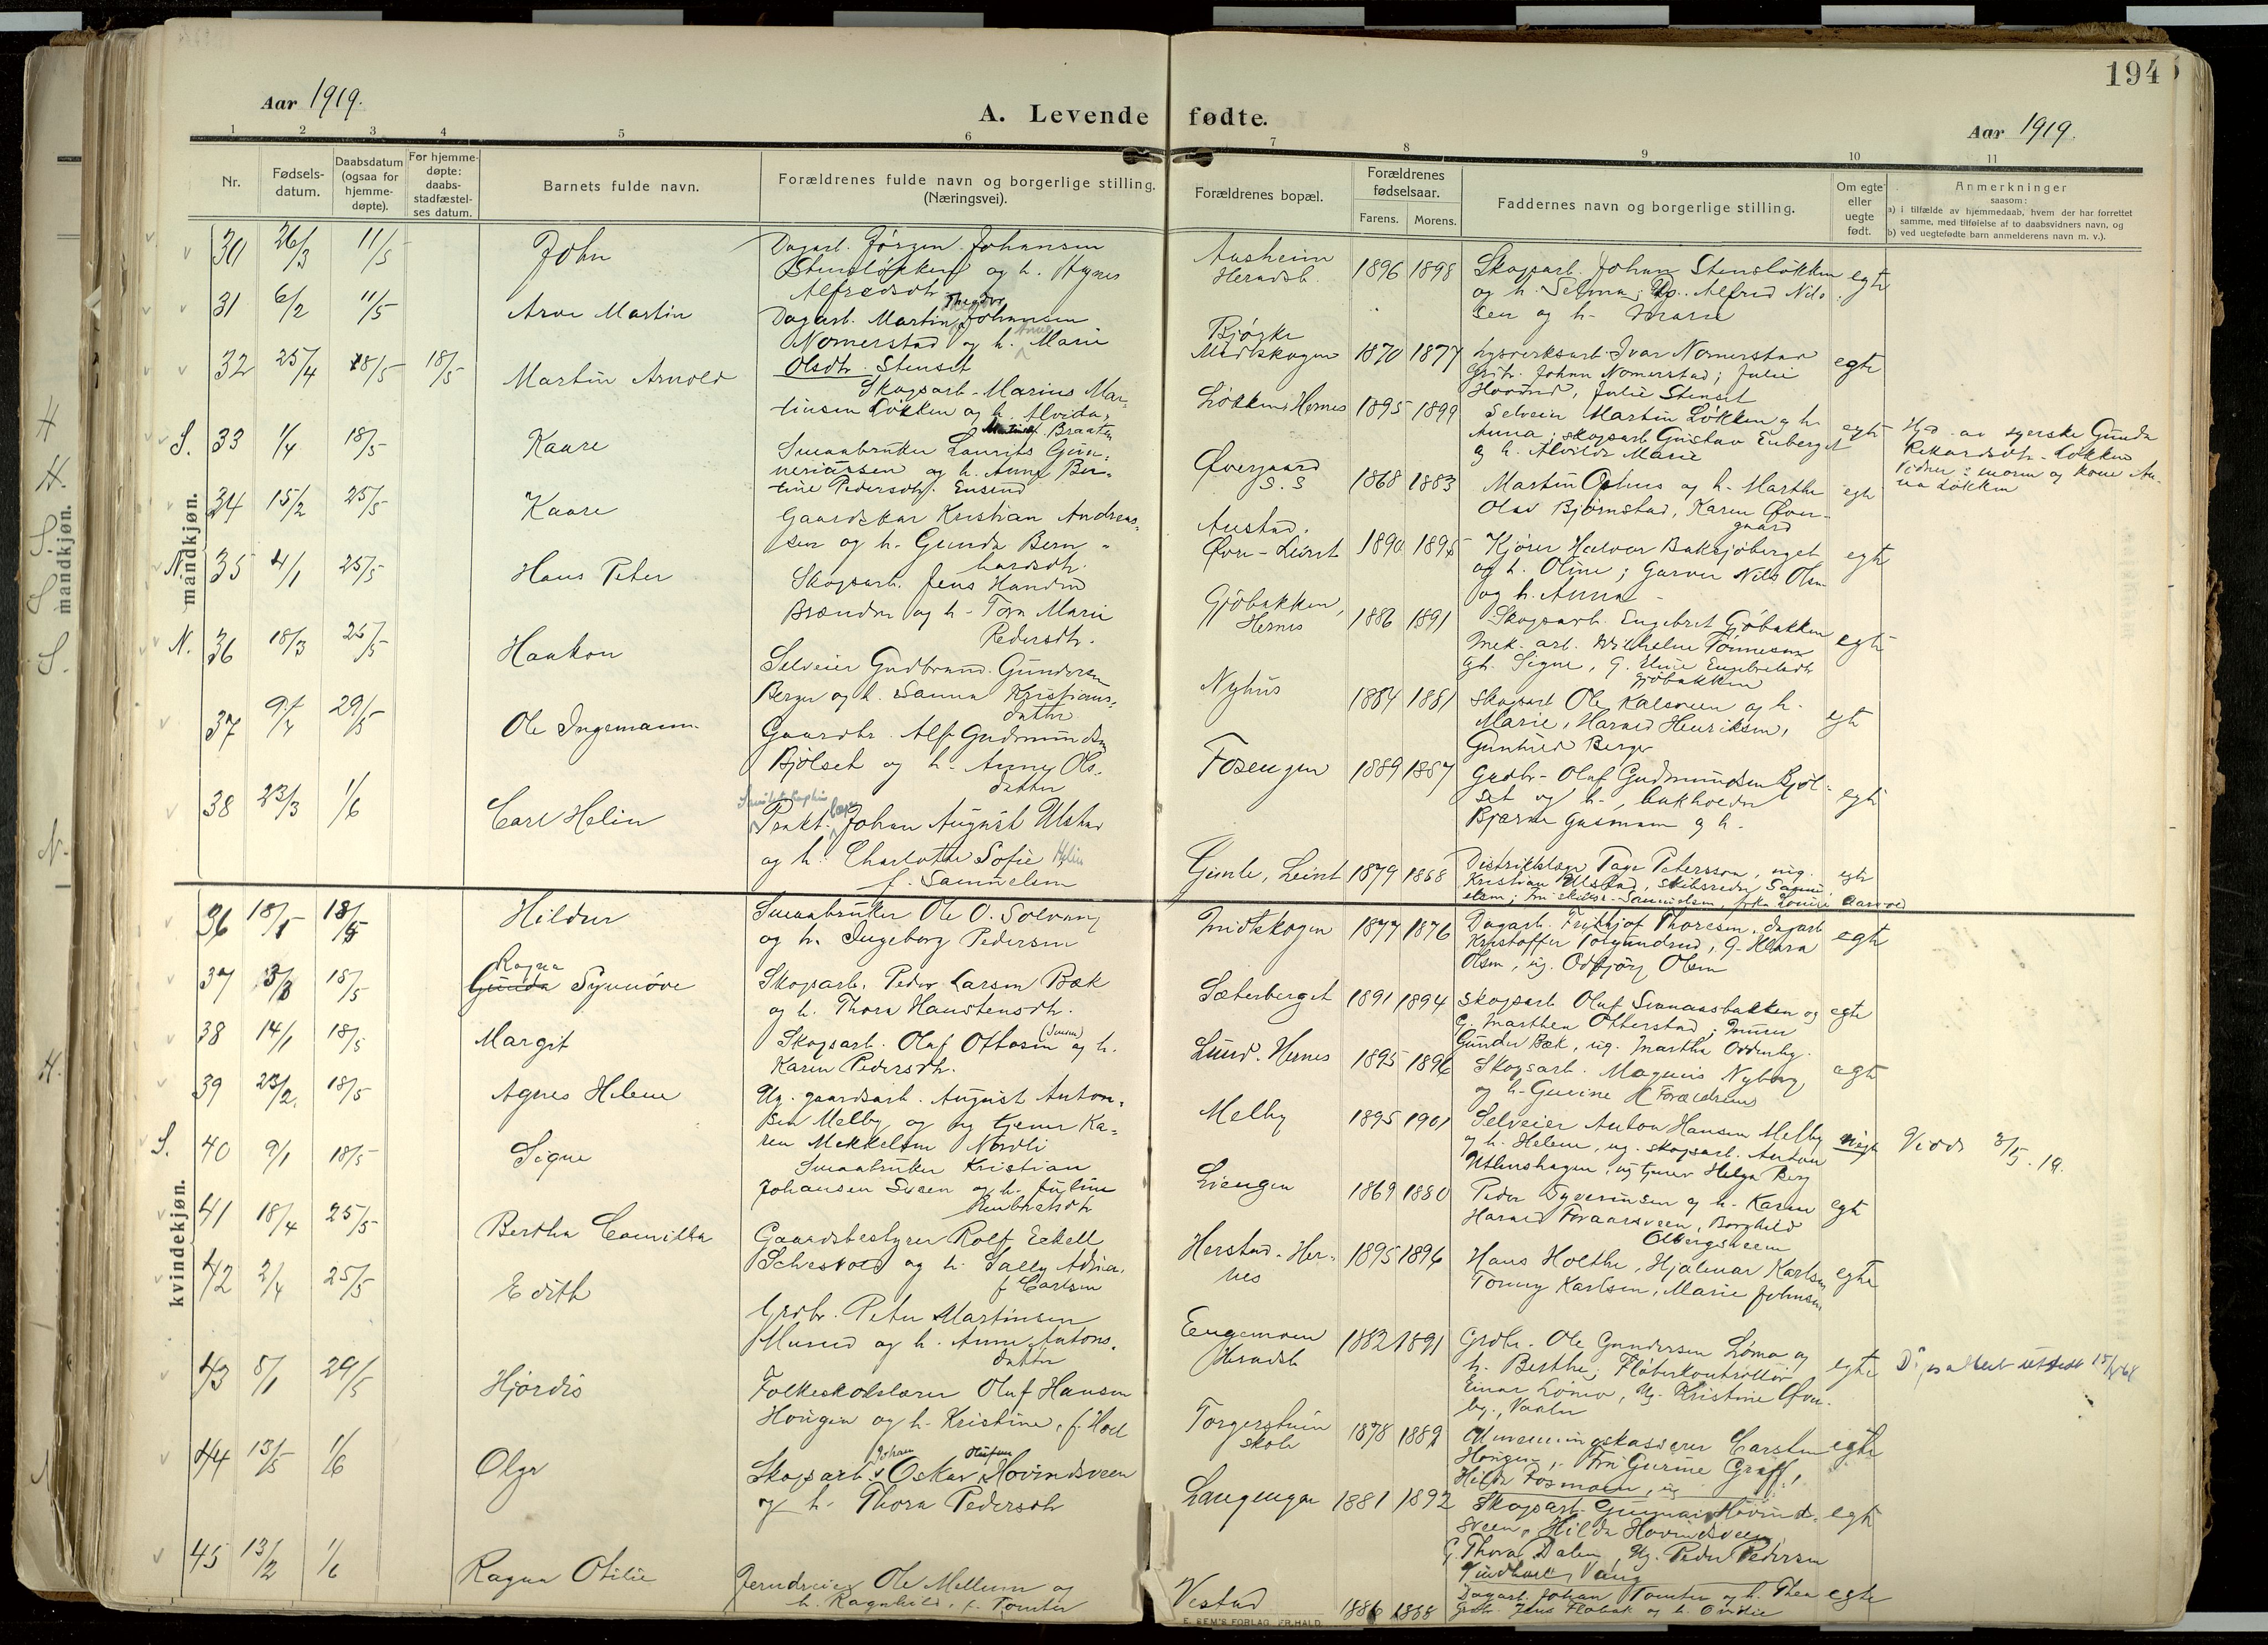 194
Aar 1919.
A. Levende fødte.
Aar 1919.
1 2 3 4 5 6 7 8 9 10 11
Nr.
Fødsels-
datum.
Daabsdatum
(ogsaa for
hjemme-
døpte).
For hjemme-
døpte:
daabs-
stadfæstel-
ses datum.
Barnets fulde navn.
Forældrenes fulde navn og borgerlige stilling.
(Næringsvei).
Forældrenes bopæl.
Forældrenes
fødselsaar.
Farens. Morens.
Faddernes navn og borgerlige stilling.
Om egte
eller
uegte
født.
Anmerkninger
saasom:
a) i tilfælde av hjemmedaab, hvem der har forrettet
samme, med tilføielse af to daabsvidners navn, og
b) ved uegtefødte barn anmelderens navn m. v.).
mandkjøn.
30 26/3 11/5 John
Dagarb. Jørgen Johansen
Stensløkken og h. Agnes
Alfredsdtr.
Aasheim
Heradsb.
1896 1898
Skogsarb. Johan Stensløkken
og h. Selma; Alfred Nils
sen og h. Marie
egte
31 6/2 11/5 Arve Martin
Dagarb. Martin Theodor Johansen
Nomerstad og h. Anne Marie
Olsdtr. Stenset
Bjørke
Midtskogen
1870 1877
Ivar Nomerstad
Johan Nomerstad; Julie
Julie Stenset
egte
32 25/4 18/5 18/5 Martin Arnold
Skogsarb. Marius Mar-
tinsen Løkken og h. Alvida
Braaten
Løkken, Hernes
1895 1899
Selveier Martin Løkken og h.
Anna; skogsarb. Gustav Enberget
og h. Alvilde Marie
egte
Hjd. av syerske Gunda
Rikardsdtr. Løkken
Vidner: morm og kone An-
na Løkken
S. 33 1/4 18/5 Kaare
Smaabruker Laurits Gun-
neriussen og h. Anne Ber-
tine Pedersdtr. Ensend
Øvergaard
S. S
1868 1883
Martin Ophus og h. Marthe
Olav Bjørnstad, Karen Øver-
gaard
egte
34 15/2 25/5 Kaare
Gaardskar Kristian Andreas-
sen og h. Gunda Bern-
hardsdtr.
Austad.
Øvre-Leiret
1890 1895
Kjører Halvor Baksjøberget
og h. Oline; Garver Nils Olsen
og h. Anna
egte
N. 35 4/1 25/5 Hans Peter
Skogsarb. Jens Hansen
Brænden og h. Tora Marie
Pedersdtr.
Gjøbakken,
Hernes
1886 1891
Skogsarb. Engebret Gjøbakken
Mek. arb. Wilhelm Tønnesen
Signe, G. Eline Engebretsdtr
Gjøbakken
egte
N. 36 18/3 25/5 Haakon
Selveier Gudbrand Gundersen
Berger og h. Sanna Kristians-
datter
Nyhus
1884 1881
Skogsarb Ole Kalsveen og h.
Marie, Harald Henriksen,
Gunhild Berger
egte
37 9/4 29/5 Ole Ingemann
Gaardbr. Alf Gudmundsen
Bjølset og h. Anny Ols-
datter
Fosengen
1889 1887
Grdbr. Olaf Gudmundsen Bjøl-
set og h., bokholder
Bjarne Gusmann og h.
egte
38 23/3 1/6 Carl Helin
Prakt. læge Johan August Ulstad
og h. Charlotte Sofie Helin
f. Samuelsen
Gimle, Leiret
1879 1868
Distriktslæge Tage Petersson, ung.
Kristian Ulstad, skibsreder Samu-
elsen; fru skibsr. Samuelsen, frk. Louise Aarvold
egte
kvindekjøn.
36 18/1 18/5 Hildur
Smaabruker Ole O. Solvang
og h. Ingeborg Pedersen
Midtskogen
1877 1876
Dagarb. Fritjof Thoresen, dagarb
Kristoffer Torgundrud, G. Klara
Olsen, ug. Odbjørg Olsen
egte
37 3/3 18/5 Ragna
Gunda Synnøve
Skogsarb. Peder Larsen Bæk
og h. Thora Haustensdtr.
Sæterberget
1891 1894
Skogsarb Oluf Svanaasbakken og
G. Marthea Otterstad; Murer
Gunder Bæk, ug. Martha Oddenby.
egte
38 14/1 18/5 Margit
Skogsarb. Olaf Ottosen og h.
Karen Pedersdtr.
Lund. Hernes
1895 1896
Skogsarb. Magnus Nyborg
og h. Gurine Forældrene
egte
39 23/2 18/5 Agnes Helene
Ug. gaardsarb. August Anton-
sen Melby og ug tjener Ka-
ren Mekkelsen Nordli
Melby
1895 1901
Selveier Anton Hansen Melby
og h. Helene, ug. skogsarb. Anton
ug tjener Helga Berg
uegte
Viede 3/5. 19.
S. 40 9/1 18/5 Signe
Smaabruker Kristian
Johansen Sveen og h. Juline
Liengen
1869 1880
Peder Syversensen og h. Karen
Harald Foraarsveen, Borghild
Olbergsveen
egte
41 18/4 25/5 Bertha Camilla
Gaardsbestyrer Rolf Eckell
Schesvold og h. Sally Adria
f. Carlsen
Herstad. Her-
nes
1895 1896
Hans Holthe, Hjalmar Karlsen
Tonny Karlsen, Marie Johnsen
egte
42 2/4 25/5 Edith
Grdbr. Peter Martinsen
Musud og h. Anne Antons-
datter
Engemoen
Heradsb
1882 1891
Grdbr. Ole Gundersen Lømo og
h. Berthe; Fløterkontrollør
Einar Lømo, Ug. Kristine Øver-
by, Vaaler
egte
43 5/1 29/5 Hjørdis
Folkeskolelærer Oluf Hansen
Hougen og h. Kristine, f. Hoel
Torgerstuen
skole
1878 1889
Carsten
Hougen, Fru Gurine Graff,
Hilda Fosmoen, ug
egte
44 13/5 1/6 Olga
Skogsarb. Johan Oskar Olufsen Hovindsveen
og h. Thora Pedersdtr
Langengen
1881 1892
Skogsarb. Gunnar Hovind-
sveen, Hilda Hovindsveen
G. Thora Dalen, Ug. Peder Pedersen
Vang
egte
45 13/2 1/6 Ragna Otilie
Ole Mellum og
h. Ragnhild, f. Tomter
Vestad
1886 1888
Dagarb. Johan Tomter og h. Thea
Grdbr. Jens Flobak og h. Ovidie
egte
E. SEM'S FORLAG, FR.HALD